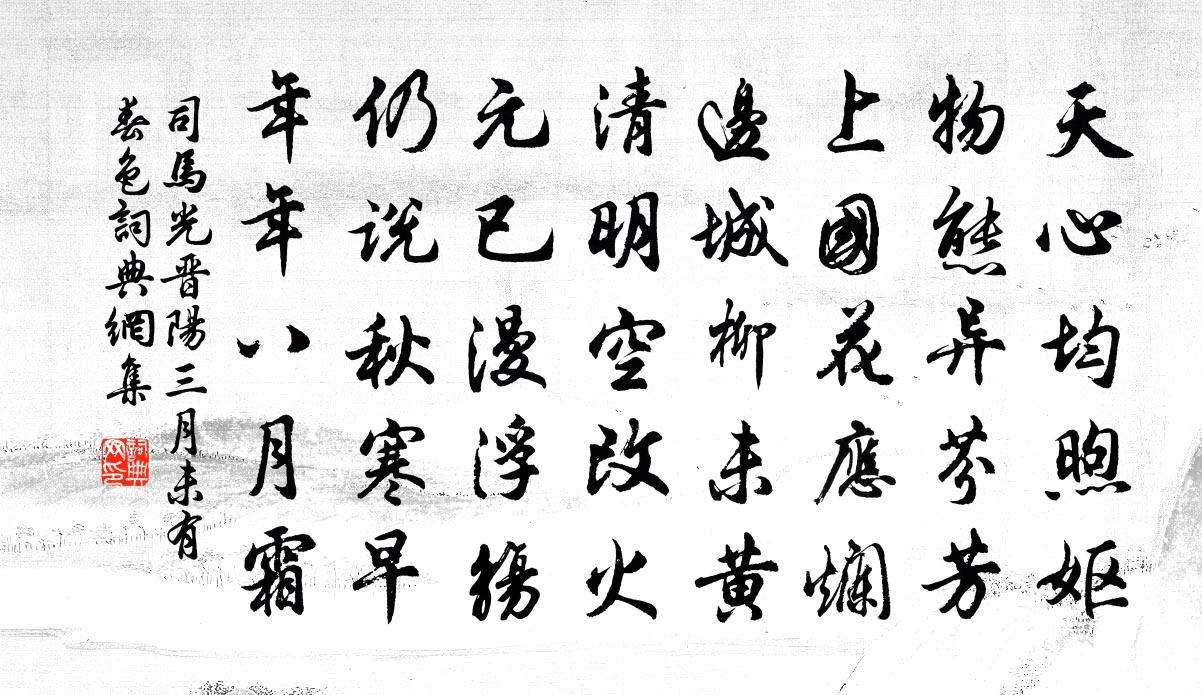 天心均煦嫗
物態异芬芳
上國花應爛
邊城柳未黃
清明空改火
元已漫浮觴
仍説秋寒早
年年八月霜
司馬光晋陽三月未有
春色詞典網集
詞典
网印